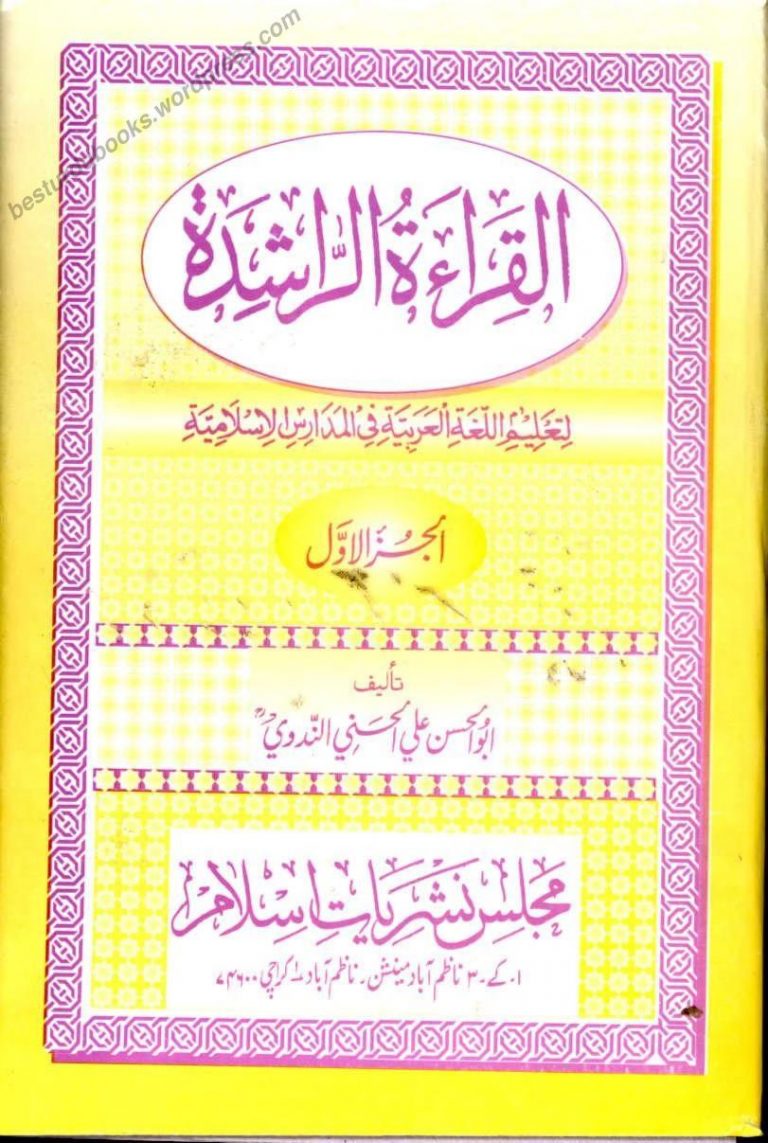 besturdubooks.wordpress.com
القِرَاءَةُ الرَّاشِدَة
لِتَعْلِيْمِ اللُّغَةِ الْعَرَبِيَّةِ فِي الْمَدَارِسِ الْاِسْلَامِيَّةِ
الجُزءُ الاوَّل
تأليف
ابو الحسن علي الحسني النّدوي رح
مجلس نشریاتِ اسلام
۱۔ کے۔ ۳ ناظم آباد مینشن۔ ناظم آباد ۱ کراچی ۷۴۶۰۰